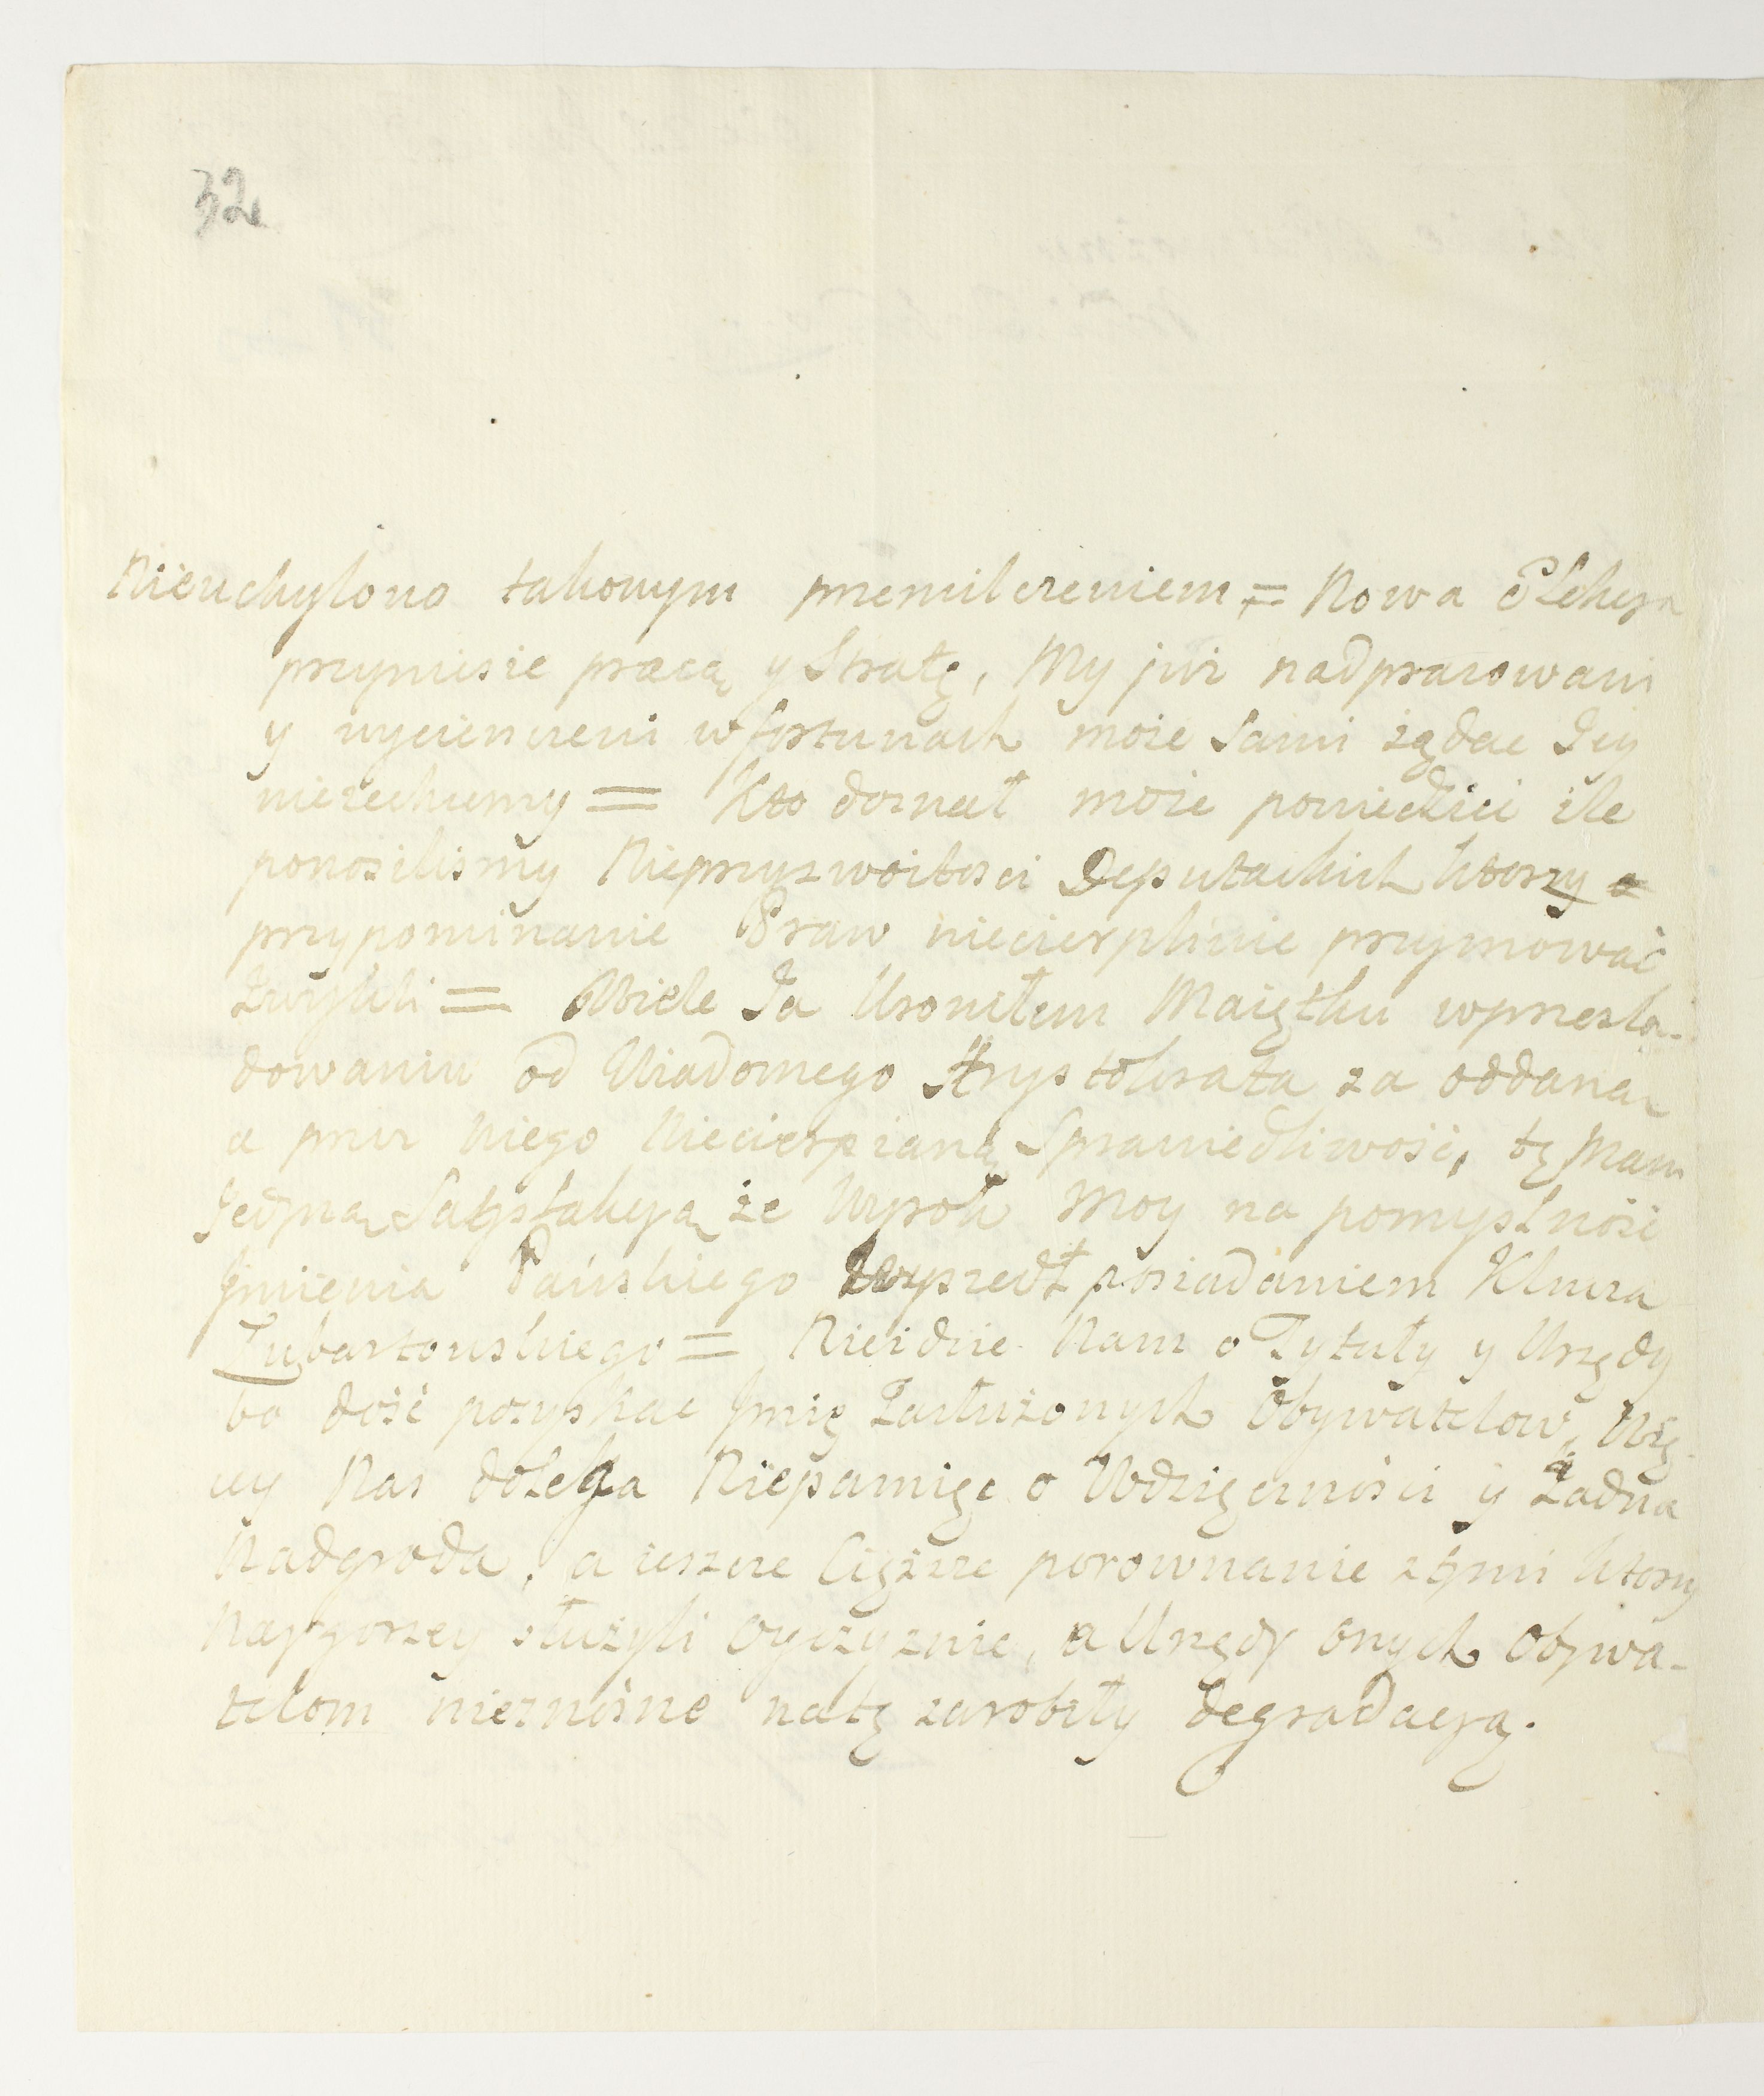 32
Nieuchylono takowym przemilczeniem = Nowa Elekcya
przyniesie pracą y Stratę, My już nadpracowani
y wycienczeni w fortunach może Sami żądac Jey
niezechcemy = Kto doznał może powiedzieć ile
ponosilismy Nieprzyzwoitosci Deputackich ktorzy
przypominanie Praw niecierpliwie przymować
Zwykli = Wiele Ja Uroniłem Maiętku w przesla-
dowaniu od Wiadomego Arystokrata za oddaną
a przez niego Niecierpianą Sprawiedliwość, tę Mam
Jedyną Satysfakcyą że Wyrok Moy na pomyslność
Jmienia Pańskiego wyszedł posiadaniem Klucza
Lubartowskiego = Nieidzie Nam o Tytuły y Urzędy
bo dość pozyskac Jmię Zasłużonych Obywatelow, Wię-
cy Nas dolega Niepamięc o Wdzięcznosci y Żadna
Nadgroda, a ieszcze Cięższe porownanie z tymi ktorzy
Naygorzey służyli Oyczyznie, a Urzędy onych Obywa-
telom nieznośne na tę zarobiły degradacyą.